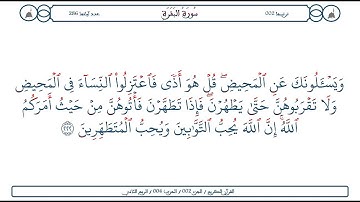 ترتيبها 002 سُورَةُ البَقَرَةِ عدد آياتها 286
وَيَسْـَٔلُونَكَ عَنِ ٱلْمَحِيضِ ۖ قُلْ هُوَ أَذًى فَٱعْتَزِلُوا۟ ٱلنِّسَآءَ فِى ٱلْمَحِيضِ
وَلَا تَقْرَبُوهُنَّ حَتَّىٰ يَطْهُرْنَ ۖ فَإِذَا تَطَهَّرْنَ فَأْتُوهُنَّ مِنْ حَيْثُ أَمَرَكُمُ
ٱللَّهُ ۚ إِنَّ ٱللَّهَ يُحِبُّ ٱلتَّوَّٰبِينَ وَيُحِبُّ ٱلْمُتَطَهِّرِينَ ٢٢٢
القرآن الكريم / الجزء 002 / الحزب 004 /